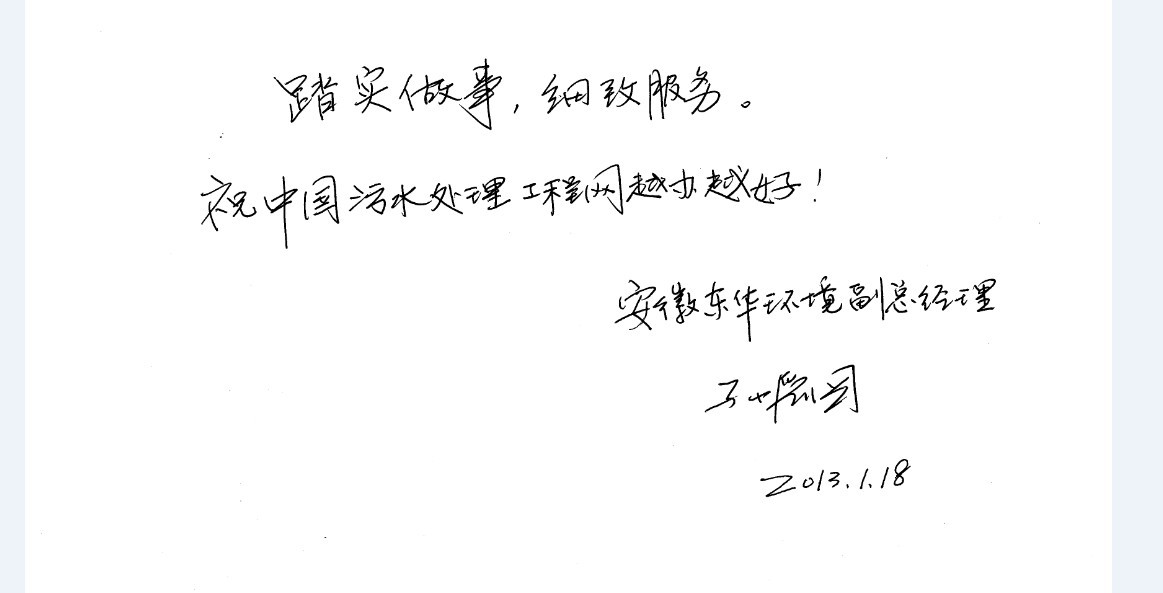 踏实做事，细致服务。
祝中国污水处理工程网越办越好！
安徽东华环境副总经理
2013.1.18